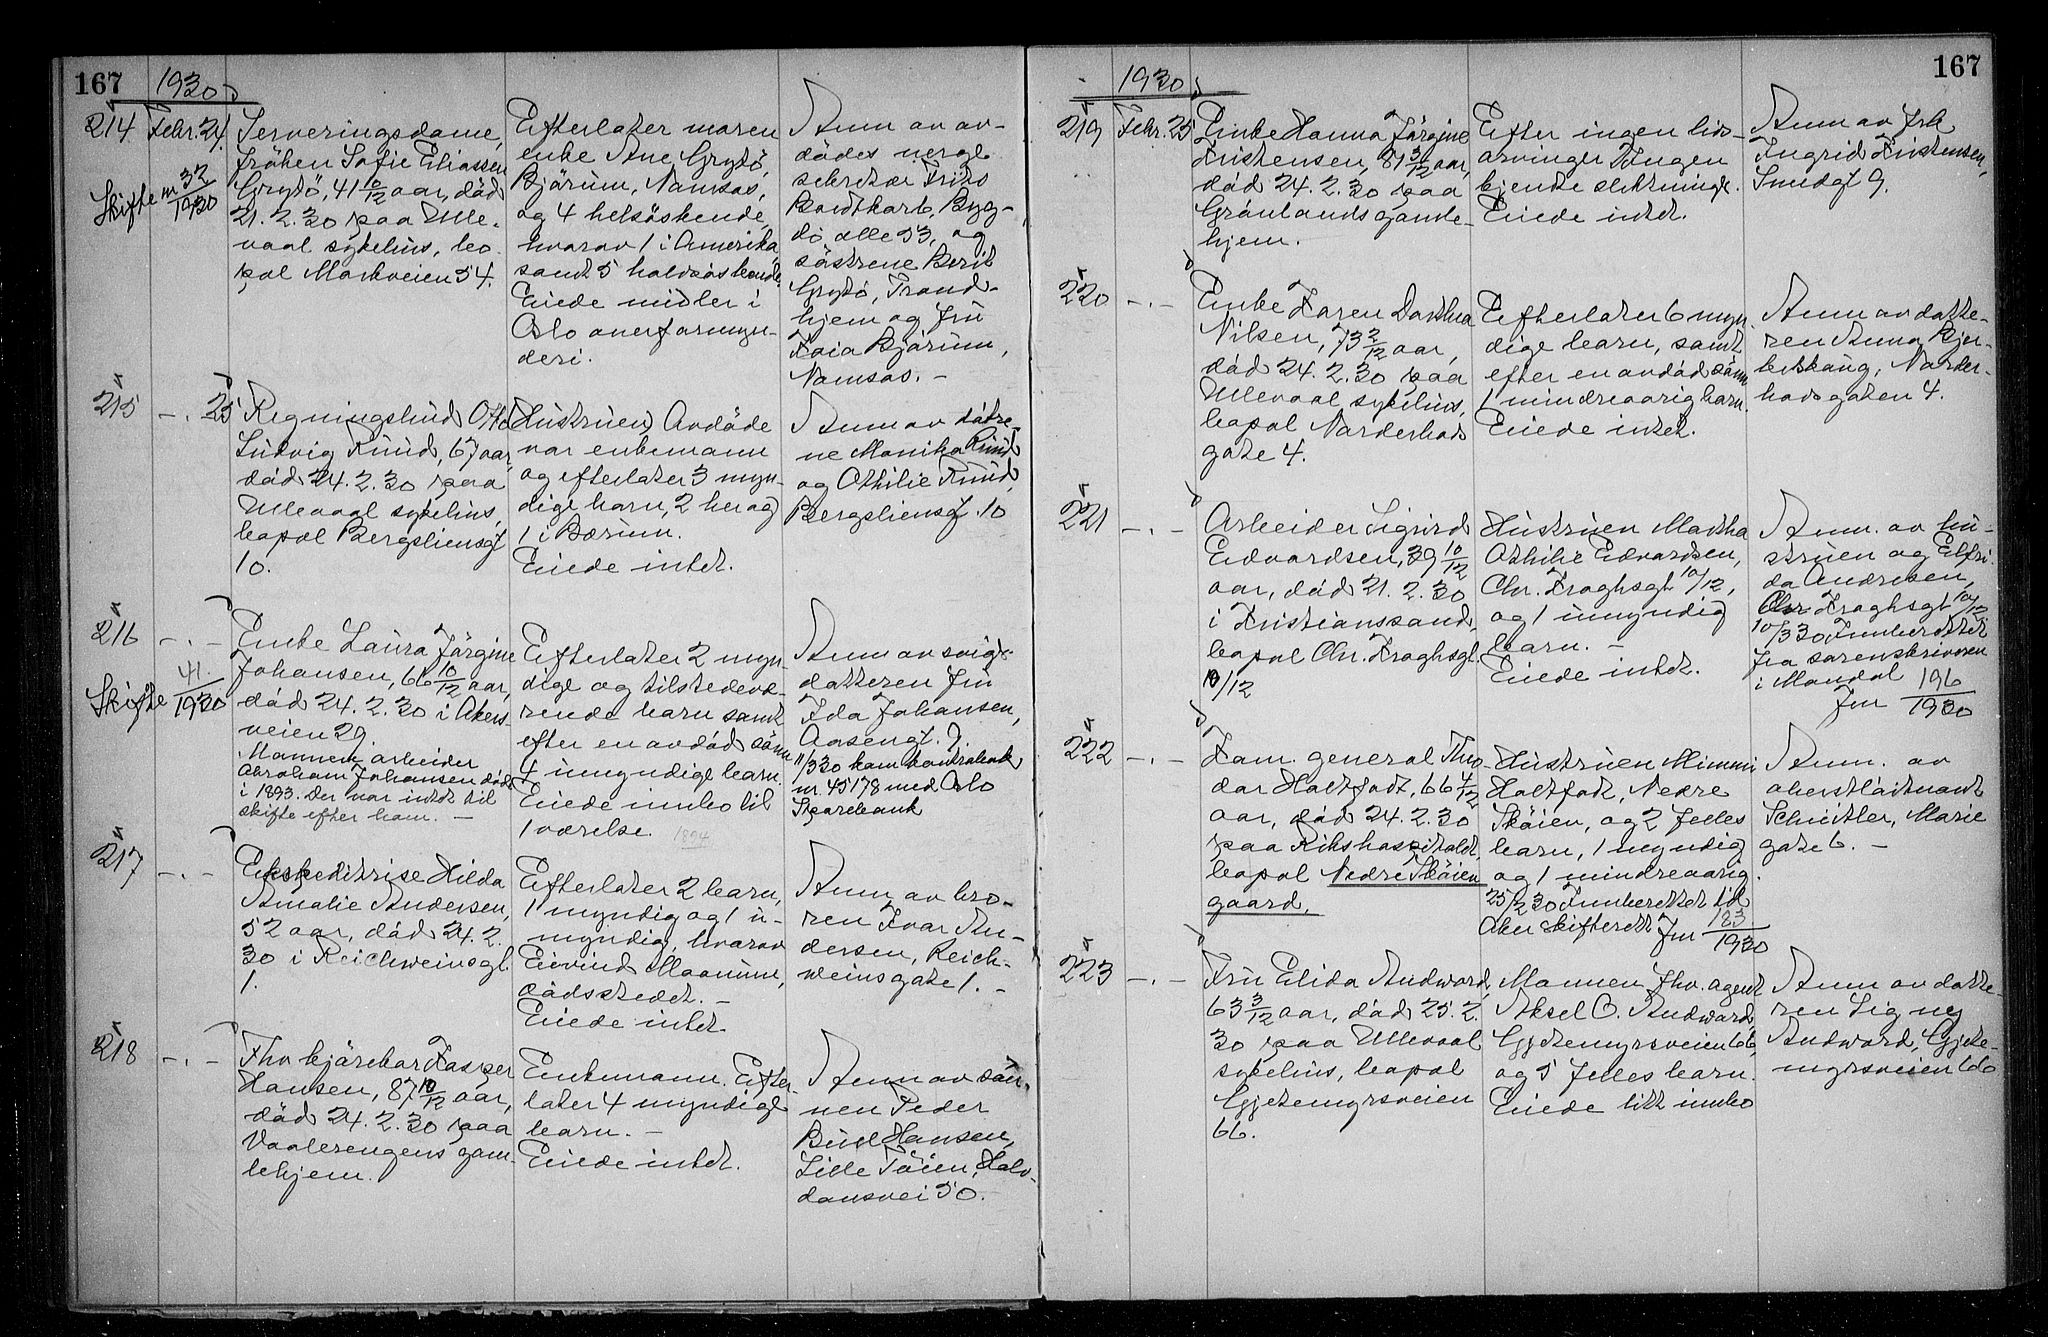 167
1930
214. Febr. 24.
Skifte nr 32/1930
Serveringsdame,
frøken Sofie Eliassen
Grytö, 41 10/12 aar, död
21.2.30 paa Ulle-
vaal sykehus, bo-
pæl Markveien 54.
Efterlater moren
enke Ane Grytö,
Bjørum, Namsos,
og 4 helsöskende,
hvorav 1 i Amerika
samt 5 halvsöskende.
Eiede midler i
Oslo overformyn-
deri.
Anm av av-
dödes verge
sekretær Frits
Bordtkorb, Byg-
dö alle 53, og
söstrene Berit
Grytö, Trond-
hjem og fru
Kaia Bjørum,
Namsos. -
215 -.- 25
Regningsbud Otto
Ludvig Ruud, 67 aar,
död 24.2.30 paa
Ullevaal sykehus,
bopæl Bergsliensgt
10.
Hustruen Avdöde
var enkemann
og efterlater 3 myn-
dige barn, 2 her og
1 i Bærum.
Eiede intet.
Anm av døtre-
ne Monika Ruud
og Othilie Ruud,
Bergsliensgt. 10
216 -.-
Skifte 41./1930
Enke Laura Jörgine
Johansen, 66 10/12 aar,
död 24.2.30 i Akers-
veien 29
Mannen arbeider
Abraham Johansen döde
i 1893. Der var intet til
skifte efter ham. -
Efterlater 2 myn-
dige og tilstedevæ-
rende barn samt
efter en avdöd sönn
4 umyndige barn.
Eiede innbo til
1 værelse. 1894
Anm av sviger-
datteren fru
Ida Johansen,
Aasengt. 9.
11/3 30 kom kontrabok
nr. 45178 med Oslo
Sparebank
217 -.-
Ekspeditrise Hilda
Amalie Andersen,
52 aar, död 24.2.
30 i Reichweinsgt.
1.
Efterlater 2 barn,
1 myndig og 1 u-
myndig, hvorav
Eivind
dödsstedet. -
Eiede intet.
Anm av bro-
ren Ivar An-
dersen, Reich-
weinsgate 1. -
218 -.-
Fhv kjörekar Kasper
Hansen, 87 10/12 aar,
död 24.2.30 paa
Vaalerengens gam-
lehjem.
Enkemann. Efter-
later 4 myndige
barn. -
Eiede intet.
Anm av sön-
nen Peder
Buel Hansen,
Lille Töien, Halv-
dansvei 50.
167
1930
219 Febr. 25
Enke Hanna Jörgine
Kristensen, 81 3/12 aar,
död 24.2.30 paa
Grönlands gamle-
hjem.
Efter ingen livs-
arvinger Ingen
kjendte slektninge.
Eiede intet.
Anm av frk
Ingrid Kristensen,
Smedgt 9.
220 -.-
Enke Karen Dorthea
Nilsen, 73 2/12 aar,
död 24.2.30 paa
Ullevaal sykehus,
bopæl Norderhovs
gate 4.
Efterlater 6 myn-
dige barn, samt
efter en avdöd sönn
1 mindreaarig barn.
Eiede intet.
Anm av datte-
ren Anna Bjer-
keshaug, Norder-
hovsgaten 4.
221 -.-
Arbeider Sigurd
Edvardsen, 39 10/12
aar, död 21.2.30
i Kristianssand,
bopæl Chr. Kroghsgt.
10/12
Hustruen Martha
Othilie Edvardsen,
Chr. Kroghsgt 10/12,
og 1 umyndig
barn. -
Eiede intet.
Anm. av hu-
struen og Elfri-
da Andresen,
Chr Kroghsgt 10/12
10/3 30 Innberettet
fra sorenskriveren
i Mandal
Jnr 196/1930
222 -.-
Kam. general Theo-
dor Holtfodt, 66 4/12
aar, död 24.2.30
paa Rikshospitalet,
bopæl Nedre Sköien
gaard,
Hustruen Mimmi
Holtfodt, Nedre
Sköien, og 2 felles
barn, 1 myndig
og 1 mindreaarig.
25/2 30 Innberettet til
Aker skifterett Jnr 183/1930
Anm. av
oberstlöitnant
Schiötler, Marie
gate 6. -
223 -.-
Fru Elida Andword,
63 3/12 aar, död 25.2.
30 paa Ullevaal
sykehus, bopæl
Gjetemyrsveien
66.
Mannen fhv. agent
Aksel O. Andword,
Gjetemyrsveien 66,
og 5 felles barn.
Eiede litt innbo
Anm av datte-
ren Signe
Andword, Gjete-
myrsveien 66